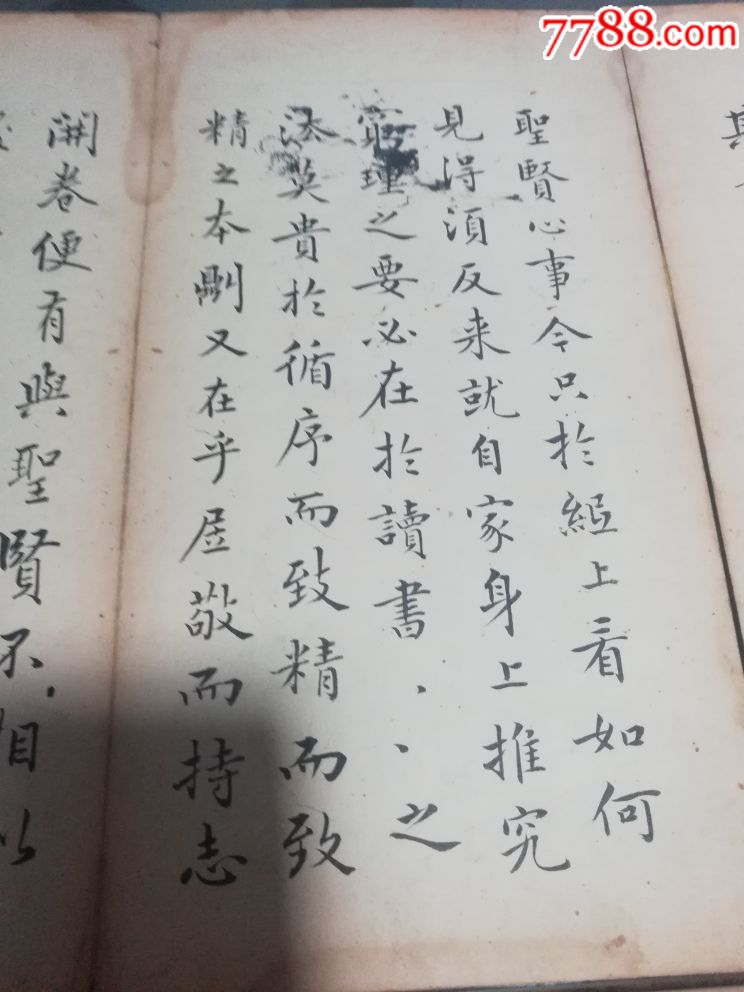 7788.com
其
聖賢心事今只於經上看如何
見得須反来就自家身上推究
窮理之要必在於讀書、、之
法莫貴於循序而致精而致
精之本則又在乎居敬而持志
開卷便有與聖賢不相似